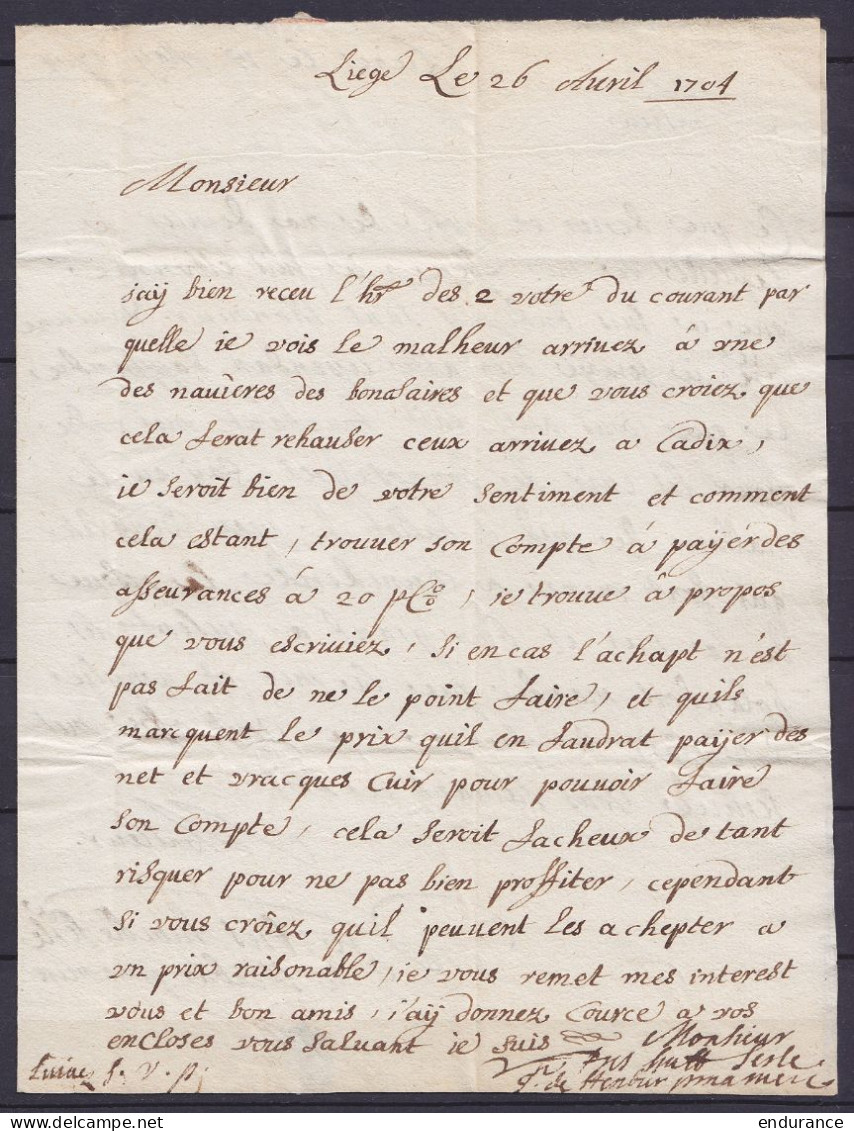 Liege Le 26 Avril 1704
Monsieur
j'aÿ bien receu l'hr̃e des 2 votre du courant par
quelle ie vois le malheur arrivez á vne
des navieres des bonasaires et que vous croiez que
cela serat rehauser ceux arrivez a Cadix,
ie seroit bien de votre sentiment et comment
cela estant, trouver son Compte á paÿer des
asseurances á 20 pC%, ie trouve á propos
que vous escriviez, si en cas l'achapt n'est
pas fait de ne le point faire, et quils
marcquent le prix quil en faudrat paÿer des
net et vracques Cuir pour pouvoir faire
son Compte, cela seroit facheux de tant
risquer pour ne pas bien proffiter, cependant
si vous croiez quil peuvent les achepter a
vn prix raisonable, ie vous remet mes interest
vous et bon amis, j'aÿ donnez Cource a vos
encloses vous saluant ie suis Monsieur
S. V. P.
de
endurance - delcampe.net